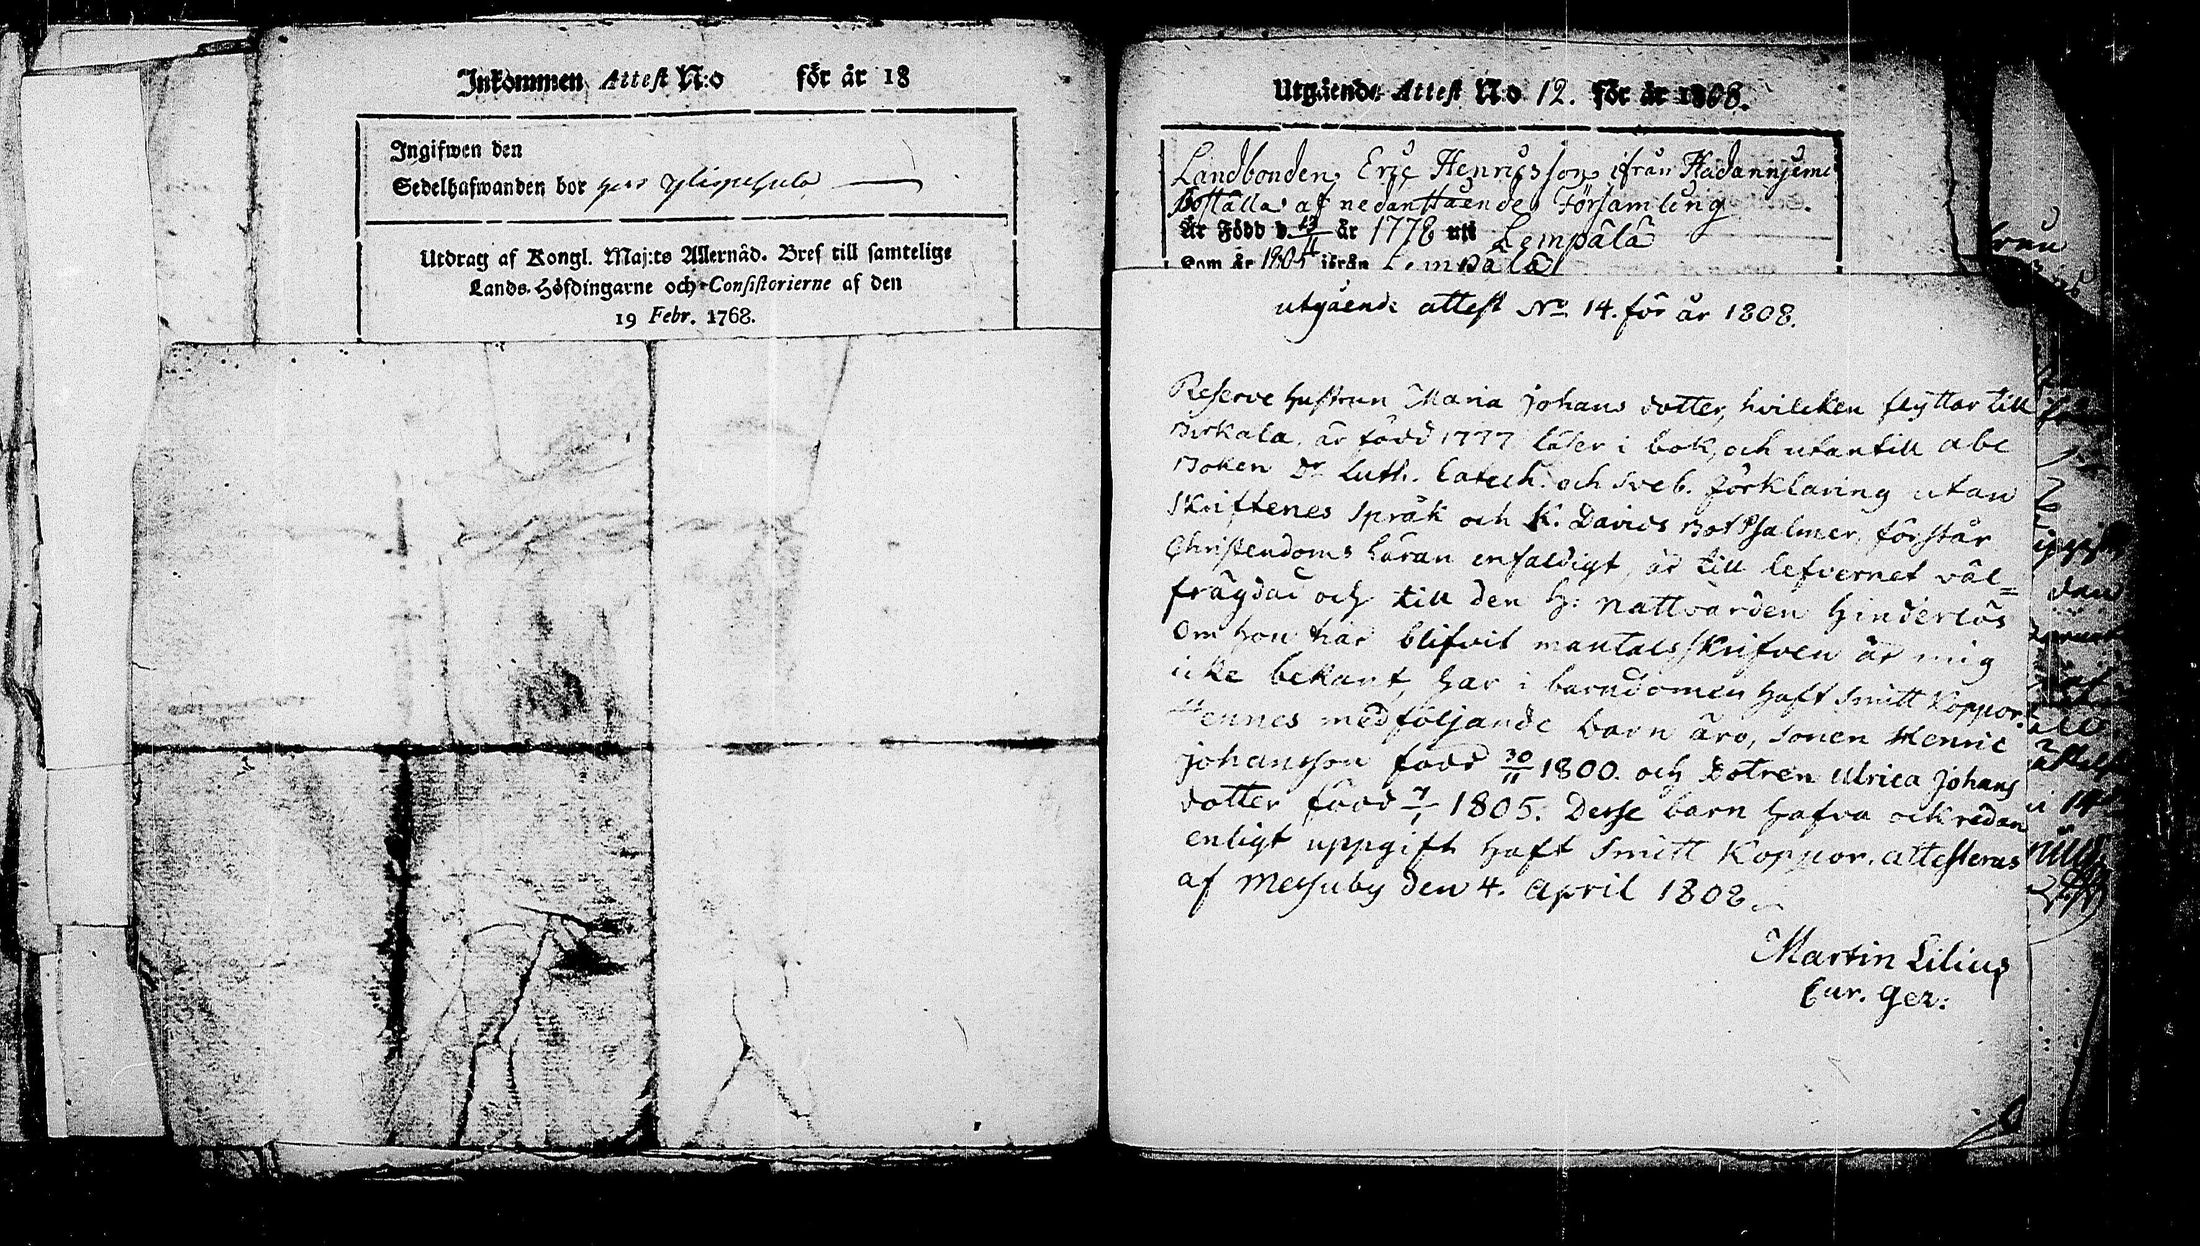 Inkommen Attest N:o för år 18
Ingifwen den
Sedelhafwanden bor
Utdrag af Kongl. Maj:ts Allernåd. Bref till samtelige
Lands-Höfdingarne och Consistorierne af den
19 Febr. 1768.
Utgående Attest No 12. för år 1808.
Landbonden Eric Henricsson ifrån
Boställa af nedanstående Församling
Är Född d. 13/11 år 1778 uti Lempälä
Som år 1805 ifrån Lempälä
utgående attest No 14. för år 1808.
Reserve hustrun Maria Johans dotter, hvilcken flyttar till
Birkala, är född 1777 läser i bok, och utantill abc
Boken Dr Luth. Catech. och Sveb. förklaring utan
Skriftenes Språk och K. Davids Bot Psalmer, förstår
Christendoms Läran enfaldigt, är till lefvernet väl=
frägdad och till den H: nattvarden hinderlös
Om hon här blifvit mantalsskrifven är mig
icke bekant, har i barndomen haft Smitt Koppor.
Hennes medföljande barn äro, Sonen Henric
Johansson född 30/11 1800. och Dotren Ulrica Johans
dotter född 7/1 1805. Desse barn hafva ock redan
enligt uppgift haft Smitt Koppor. attesteras
af Messuby den 4. April 1808.
Martin Lilius
Cur. Ger: